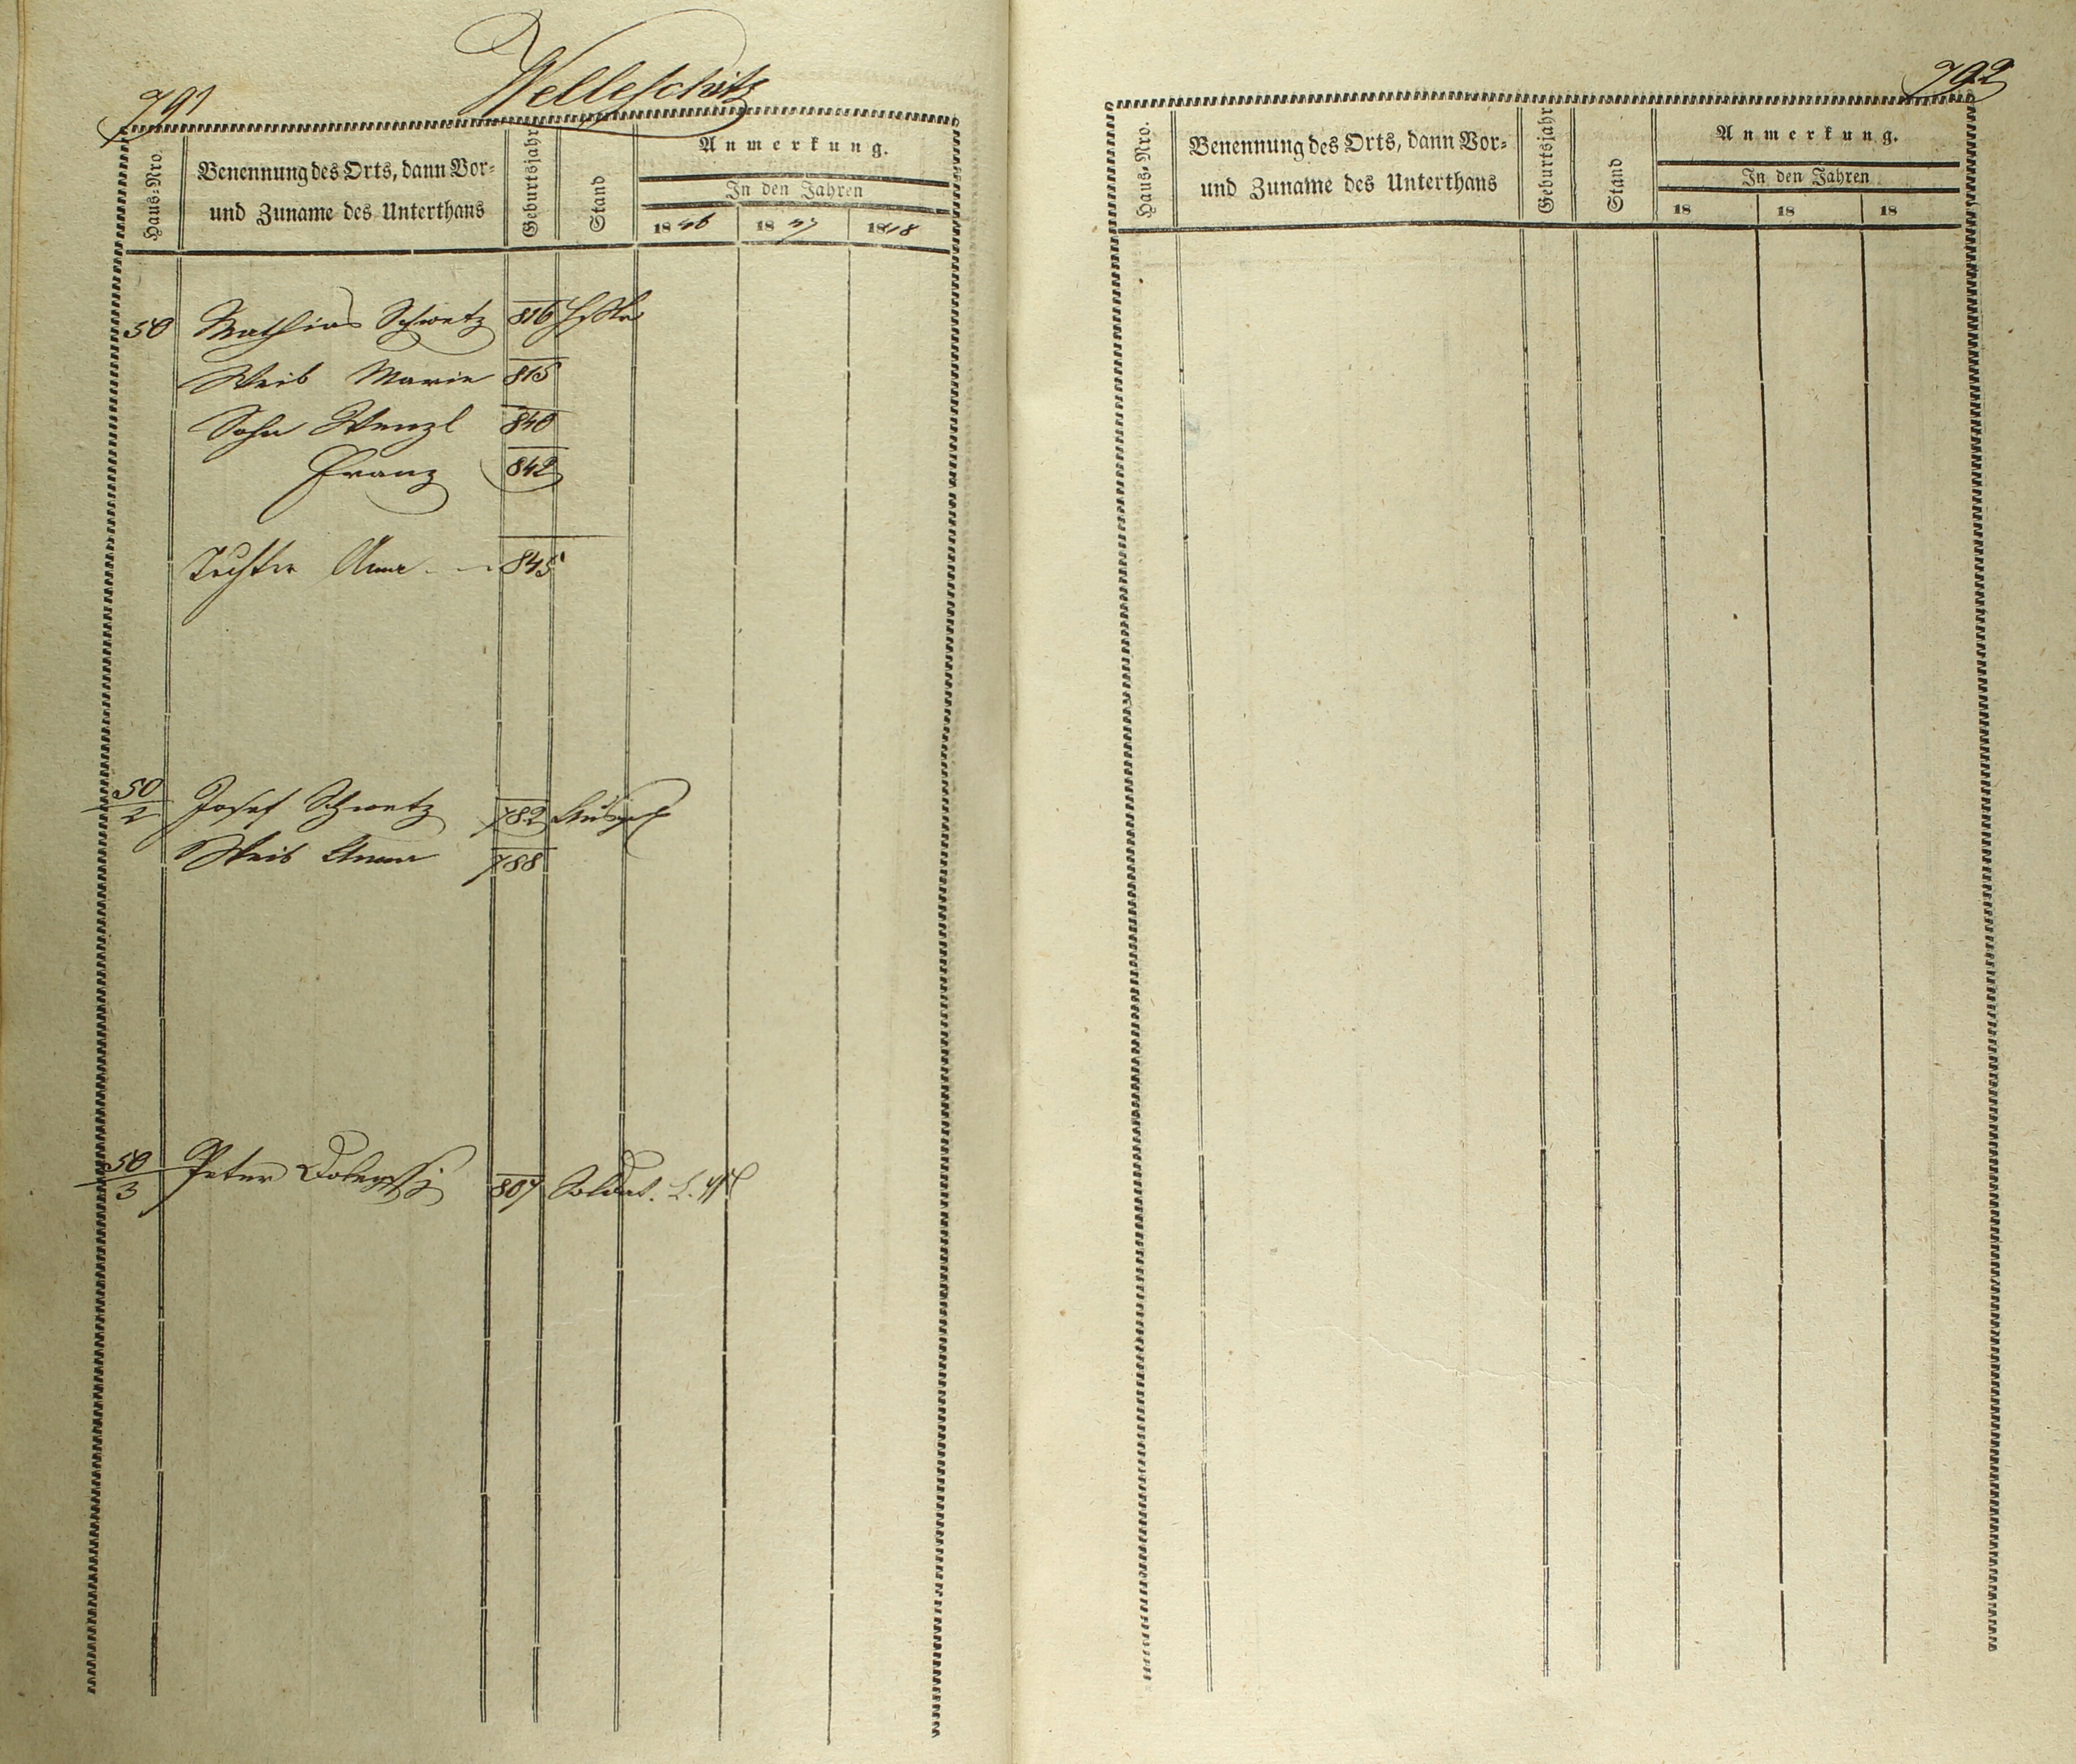 791
Welleschitz
Haus-Nro.
Benennung des Orts, dann Vor-
und Zuname des Unterthans
Geburtsjahr
Stand
Anmerkung.
In den Jahren
1846 1847 1848
50 Mathias Schwetz 816
Weib Marie 815
Sohn Wenzl 840
Franz 842
Tochter Anna 845
50/2 Josef Schwetz 782
Weib Anna 788
50/3 Peter 807 Soldat.
792
Haus-Nro.
Benennung des Orts, dann Vor-
und Zuname des Unterthans
Geburtsjahr
Stand
Anmerkung.
In den Jahren
18 18 18